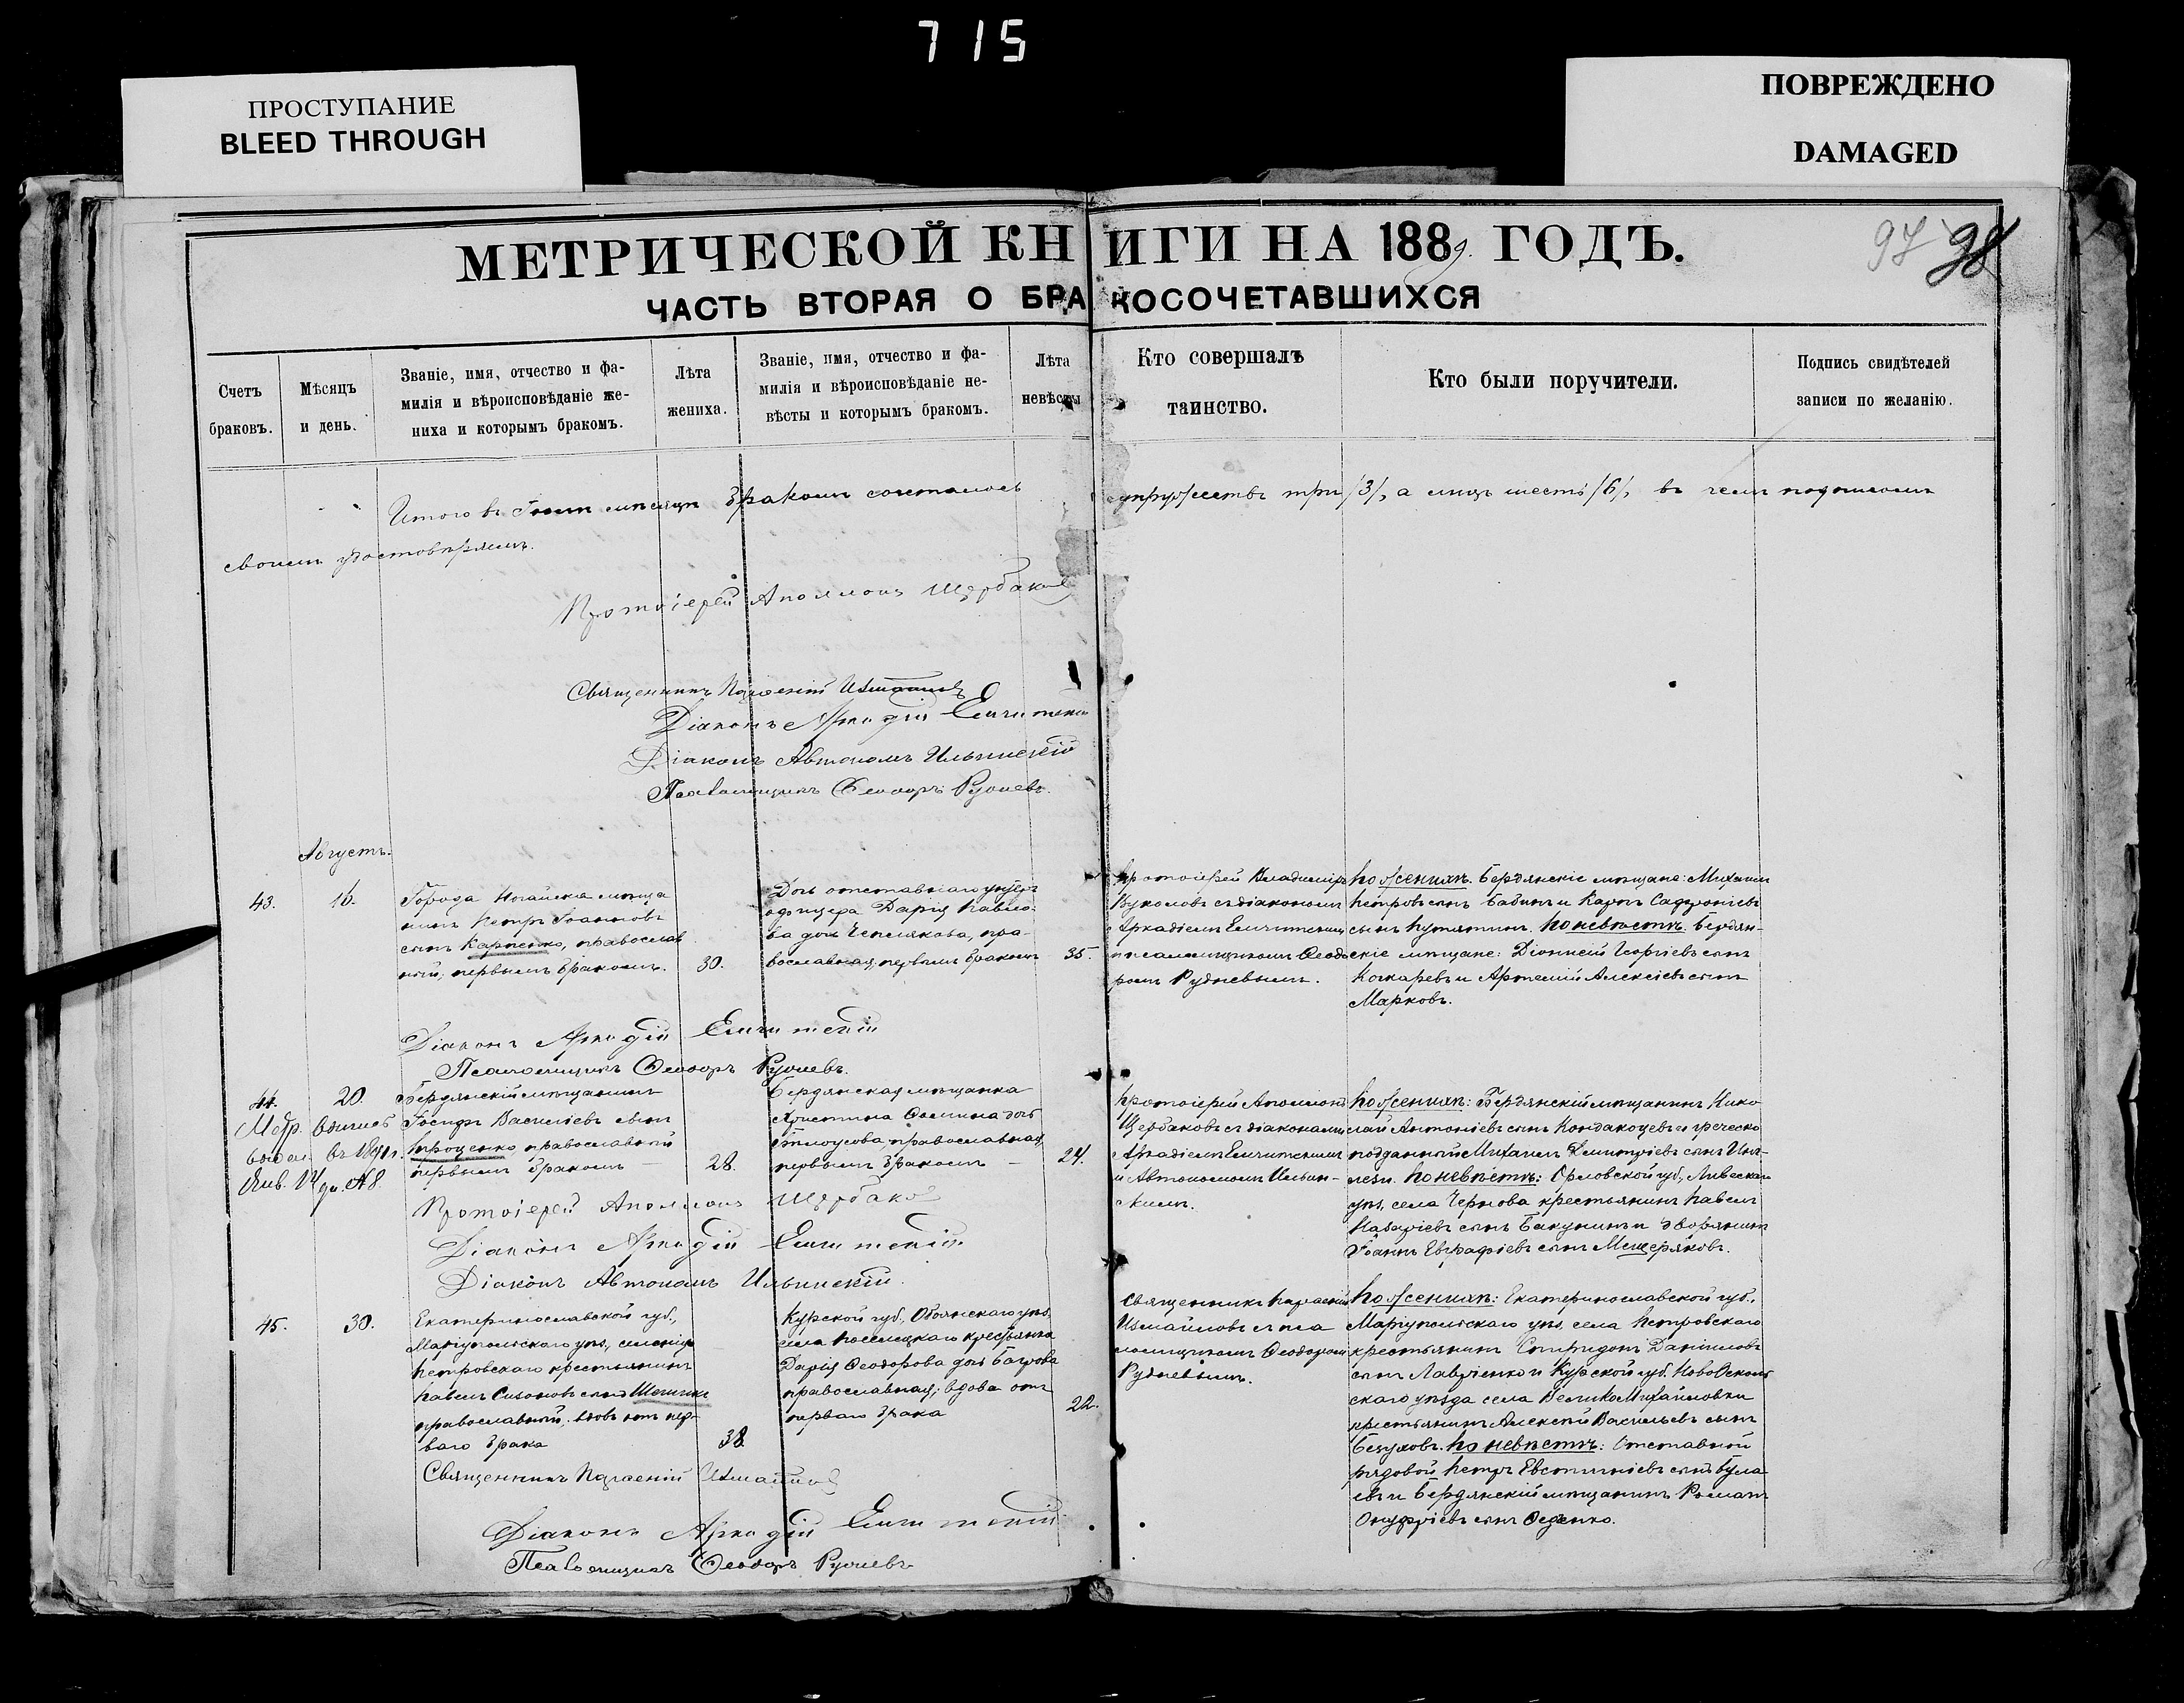 715
ПРОСТУПАНИЕ
BLEED THROUGH
ПОВРЕЖДЕНО
DAMAGED
МЕТРИЧЕСКОЙ КНИГИ НА 1889 ГОДЪ.
97 98
ЧАСТЬ ВТОРАЯ О БРАКОСОЧЕТАВШИХСЯ
Счетъ
браковъ.
Мѣсяцъ
и день.
Званіе, имя, отчество и фа-
милія и вѣроисповѣданіе же-
ниха и которымъ бракомъ.
Лѣта
жениха.
Званіе, имя, отчество и фа-
милія и вѣроисповѣданіе не-
вѣсты и которымъ бракомъ.
Лѣта
невѣсты
Кто совершалъ
таинство.
Кто были поручители.
Подпись свидѣтелей
записи по желанію.
Итого въ мѣсяцѣ бракомъ сочеталось супружествъ три /3/, а лицъ шесть /6/, въ чемъ подписомъ
своимъ удостовѣряемъ.
Протоіерей Аполлонъ Щербаковъ
Священникъ Измаиловъ
Діаконъ Аркадій
Діаконъ Автономъ Ильинскій
Псаломщикъ Ѳеодоръ Рудневъ.
Августъ.
43.
16.
Города Ногайска мѣща
нинъ Петръ Іоанновъ
сынъ Карпенко, православ
ный, первымъ бракомъ.
30.
Дочь отставнаго унтеръ
офицера Дарія Павло-
ва дочь Чепелякова, пра-
вославная, первымъ бракомъ
35.
Протоіерей Владиміръ
Вуколовъ съ діакономъ
Аркадіемъ
псаломщикомъ Ѳеодо
ромъ Рудневымъ.
По женихѣ: Бердянскіе мѣщане: Михаилъ
Петровъ сынъ Бабинъ и Карпъ
сынъ Путятинъ. По невѣстѣ: Бердян-
скіе мѣщане: Діонисій Георгіевъ сынъ
Кочкаревъ и Артемій Алексіевъ сынъ
Марковъ.
Діаконъ Аркадій
Псаломщикъ Ѳеодоръ Рудневъ.
44.
20.
Метр. выпись
выдан. въ
Янв. 14 дн. №8
Бердянскій мѣщанинъ
Іосифъ Василіевъ сынъ
Проценко православный
первымъ бракомъ —
28.
Бердянская мѣщанка
Христина Ѳомина дочь
Бѣлоусова, православная,
первымъ бракомъ —
24.
Протоіерей Аполлонъ
Щербаковъ съ діаконами
Аркадіемъ
и Автономомъ Ильин-
скимъ.
По женихѣ: Бердянскій мѣщанинъ Нико
лай Антоніевъ сынъ Кондакоцевъ и греческо
подданный Михаилъ Димитріевъ сынъ
По невѣстѣ: Орловской губ., Ливенскаго
уѣз. села Чернова крестьянинъ Павелъ
Назаріевъ сынъ Бакунинъ и дворянинъ
Іоаннъ Евграфіевъ сынъ Мещеряковъ.
Протоіерей Аполлонъ Щербаковъ
Діаконъ Аркадій
Діаконъ Автономъ Ильинскій.
45.
30.
Екатеринославской губ.,
Маріупольскаго уѣз., селенія
Петровскаго крестьянинъ
Павелъ сынъ
православный, вдовъ отъ пер-
ваго брака
38.
Курской губ., Обоянскаго уѣз.
села крестьянка
Дарія Ѳеодорова дочь Багрова
православная, вдова отъ
перваго брака
22.
Священникъ
Измаиловъ съ пса
ломщикомъ Ѳеодоромъ
Рудневымъ.
По женихѣ: Екатеринославской губ.,
Маріупольскаго уѣз. села Петровскаго
крестьянинъ Спиридонъ Даніиловъ
сынъ Лавріенко и Курской губ. НовоОсколь
скаго уѣзда села ВеликоМихайловки
крестьянинъ Алексій Васильевъ сынъ
Безуховъ. По невѣстѣ: Отставной
рядовой Петръ Евстигніевъ сынъ Була
евъ и Бердянскій мѣщанинъ Романъ
Онуфріевъ сынъ Феденко.
Священникъ Измаиловъ
Діаконъ Аркадій
Псаломщикъ Ѳеодоръ Рудневъ